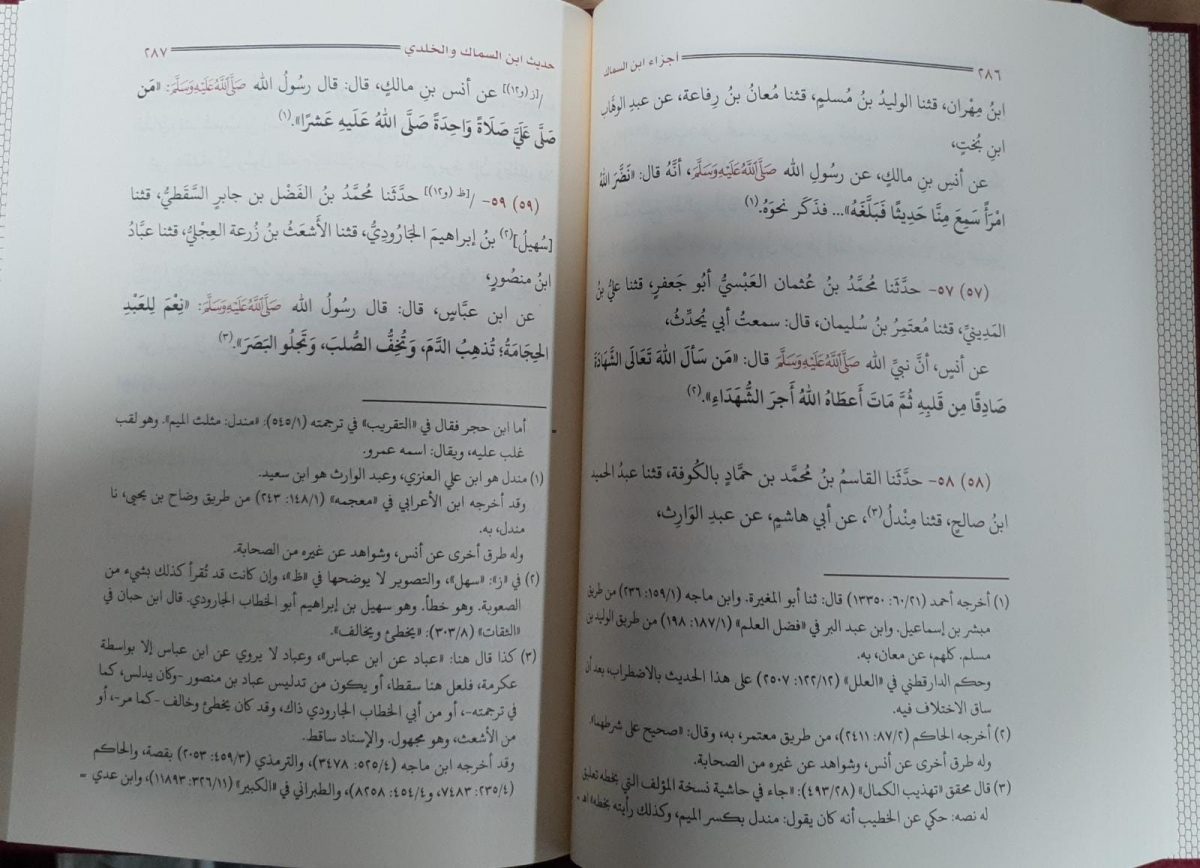 ٢٨٦
أجزاء ابن السماك
ابنُ مِهْران، قثنا الوليدُ بنُ مُسلمٍ، قثنا مُعانُ بنُ رِفاعة، عن عبدِ الوهَّاب
ابنِ بُختٍ،
عن أنسِ بنِ مالكٍ، عن رسُولِ الله ﷺ، أنَّهُ قال: «نَضَّرَ اللهُ
امْرَأً سَمِعَ مِنَّا حَدِيثًا فَبَلَّغَهُ»... فذكَر نحوَهُ.(١)
(٥٧) ٥٧- حدَّثَنا مُحمَّدُ بنُ عُثمان العَبْسيُّ أبُو جَعفرٍ، قثنا عليُّ بنُ
المَدِينيِّ، قثنا مُعتَمِرُ بنُ سُليمان، قال: سمعتُ أبي يُحدِّثُ،
عن أنسٍ، أنَّ نبيَّ الله ﷺ قال: «مَن سَألَ اللهَ تَعَالَى الشَّهَادَةَ
صَادِقًا مِن قَلبِهِ ثُمَّ مَاتَ أَعطَاهُ اللهُ أَجرَ الشُّهَدَاءِ».(٢)
(٥٨) ٥٨- حدَّثَنا القاسمُ بنُ مُحمَّد بن حمَّادٍ بالكُوفة، قثنا عبدُ الحميد
ابنُ صالحٍ، قثنا مِنْدلُ(٣)، عن أبي هاشمٍ، عن عبدِ الوَارِث،
(١) أخرجه أحمد (٦٠/٢١: ١٣٣٥٠) قال: ثنا أبو المغيرة. وابن ماجه (١٥٩/١: ٢٣٦) من طريق
مبشر بن إسماعيل. وابن عبد البر في «فضل العلم» (١٨٧/١: ١٩٨) من طريق الوليد بن
مسلم. كلهم، عن معان، به.
وحكم الدارقطني في «العلل» (١٢٢/١٢: ٢٥٠٧) على هذا الحديث بالاضطراب، بعد أن
ساق الاختلاف فيه.
(٢) أخرجه الحاكم (٨٧/٢: ٢٤١١)، من طريق معتمر، به، وقال: «صحيح على شرطهما».
وله طرق أخرى عن أنس، وشواهد عن غيره من الصحابة.
(٣) قال محقق «تهذيب الكمال» (٤٩٣/٢٨): «جاء في حاشية نسخة المؤلف التي بخطه تعليق
له نصه: حكي عن الخطيب أنه كان يقول: مندل بكسر الميم، وكذلك رأيته بخطه» اهـ.
حديث ابن السماك والخلدي
٢٨٧
/[ز (و١٢)] عن أنس بنِ مالكٍ، قال: قال رسُولُ الله ﷺ: «مَن
صَلَّى عَلَيَّ صَلَاةً وَاحِدَةً صَلَّى اللهُ عَلَيهِ عَشرًا».(١)
(٥٩) ٥٩- /[ظ (و١٢)] حدَّثَنا مُحمَّدُ بنُ الفَضْل بن جابرٍ السَّقَطيُّ، قثنا
[سُهيلُ](٢) بنُ إبراهيمَ الجَارُوديُّ، قثنا الأشعَثُ بنُ زُرعة العِجْليُّ، قثنا عبَّادُ
ابنُ منصُورٍ،
عن ابن عبَّاسٍ، قال: قال رسُولُ الله ﷺ: «نِعْمَ لِلعَبْدِ
الحِجَامَةُ؛ تُذهِبُ الدَّمَ، وَتُخِفُّ الصُّلبَ، وَتَجلُو البَصَرَ».(٣)
أما ابن حجر فقال في «التقريب» في ترجمته (٥٤٥/١): «مندل: مثلث الميم». وهو لقب
غلب عليه، ويقال: اسمه عمرو.
(١) مندل هو ابن علي العنزي، وعبد الوارث هو ابن سعيد.
وقد أخرجه ابن الأعرابي في «معجمه» (١٤٨/١: ٢٤٣) من طريق وضاح بن يحيى، نا
مندل، به.
وله طرق أخرى عن أنس، وشواهد عن غيره من الصحابة.
(٢) في «ز»: «سهل»، والتصوير لا يوضحها في «ظ»، وإن كانت قد تُقرأ كذلك بشيء من
الصعوبة. وهو خطأ. وهو سهيل بن إبراهيم أبو الخطاب الجارودي. قال ابن حبان في
«الثقات» (٣٠٣/٨): «يخطئ ويخالف».
(٣) كذا قال هنا: «عباد عن ابن عباس»، وعباد لا يروي عن ابن عباس إلا بواسطة
عكرمة، فلعل هنا سقطا، أو يكون من تدليس عباد بن منصور -وكان يدلس، كما
في ترجمته-، أو من أبي الخطاب الجارودي ذاك، وقد كان يخطئ وخالف -كما مر-، أو
من الأشعث، وهو مجهول. والإسناد ساقط.
وقد أخرجه ابن ماجه (٥٢٥/٤: ٣٤٧٨)، والترمذي (٤٥٩/٣: ٢٠٥٣) بقصة، والحاكم
(٢٣٥/٤: ٧٤٨٣، و٤٥٤/٤: ٨٢٥٨)، والطبراني في «الكبير» (٣٢٦/١١: ١١٨٩٣)، وابن عدي =